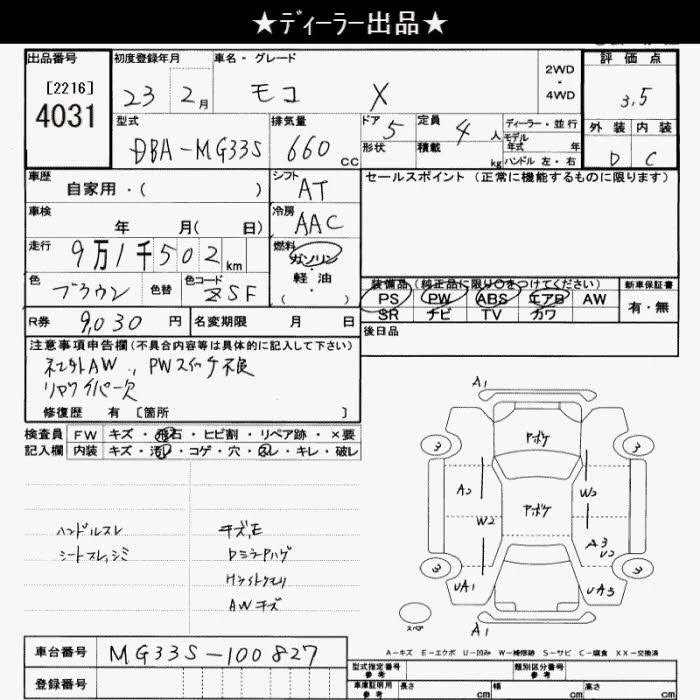 ★ディーラー出品★
出品番号
[2216]
4031
初度登録年月
23 2月
車名・グレード
モコ X
2WD
・
4WD
評価点
3.5
外装 内装
D C
型式
DBA-MG33S
排気量
660 cc
ドア 5
形状
定員 4 人
積載 kg
ディーラー・並行
モデル
年式 年
ハンドル 左・右
車歴
自家用・( )
シフト
AT
セールスポイント(正常に機能するものに限ります)
車検
年 月( 日)
冷房
AAC
走行
9万1千502km
燃料
ガソリン
軽油
( )
色
ブラウン
色替
色コード
ZSF
装備品(純正品に限り○をつけてください)
PS PW ABS エアB AW
SR ナビ TV カワ
新車保証書
有・無
R券 9,030 円
名変期限 月 日
後日品
注意事項申告欄(不具合内容等は具体的に記入して下さい)
AW、PWスイッチ不良
リヤワイパー欠
修復歴 有 [箇所 ]
検査員
記入欄
FW キズ・飛石・ヒビ割・リペア跡・×要
内装 キズ・汚れ・コゲ・穴・スレ・キレ・破レ
ハンドルスレ
シートスレ,シミ
キズ,E
DミラーAハゲ
Hライトクモリ
AWキズ
A1
3 Aボケ 3
A2 W2
W2 Aボケ A3
U2
3 3
UA1 UA3
スペア
A1
A-キズ E-エクボ U-凹み W-補修跡 S-サビ C-腐食 XX-交換済
車台番号
MG33S-100827
登録番号
型式指定番号
参考
類別区分番号
参考
車庫証明用
参考
長さ cm 幅 cm 高さ cm